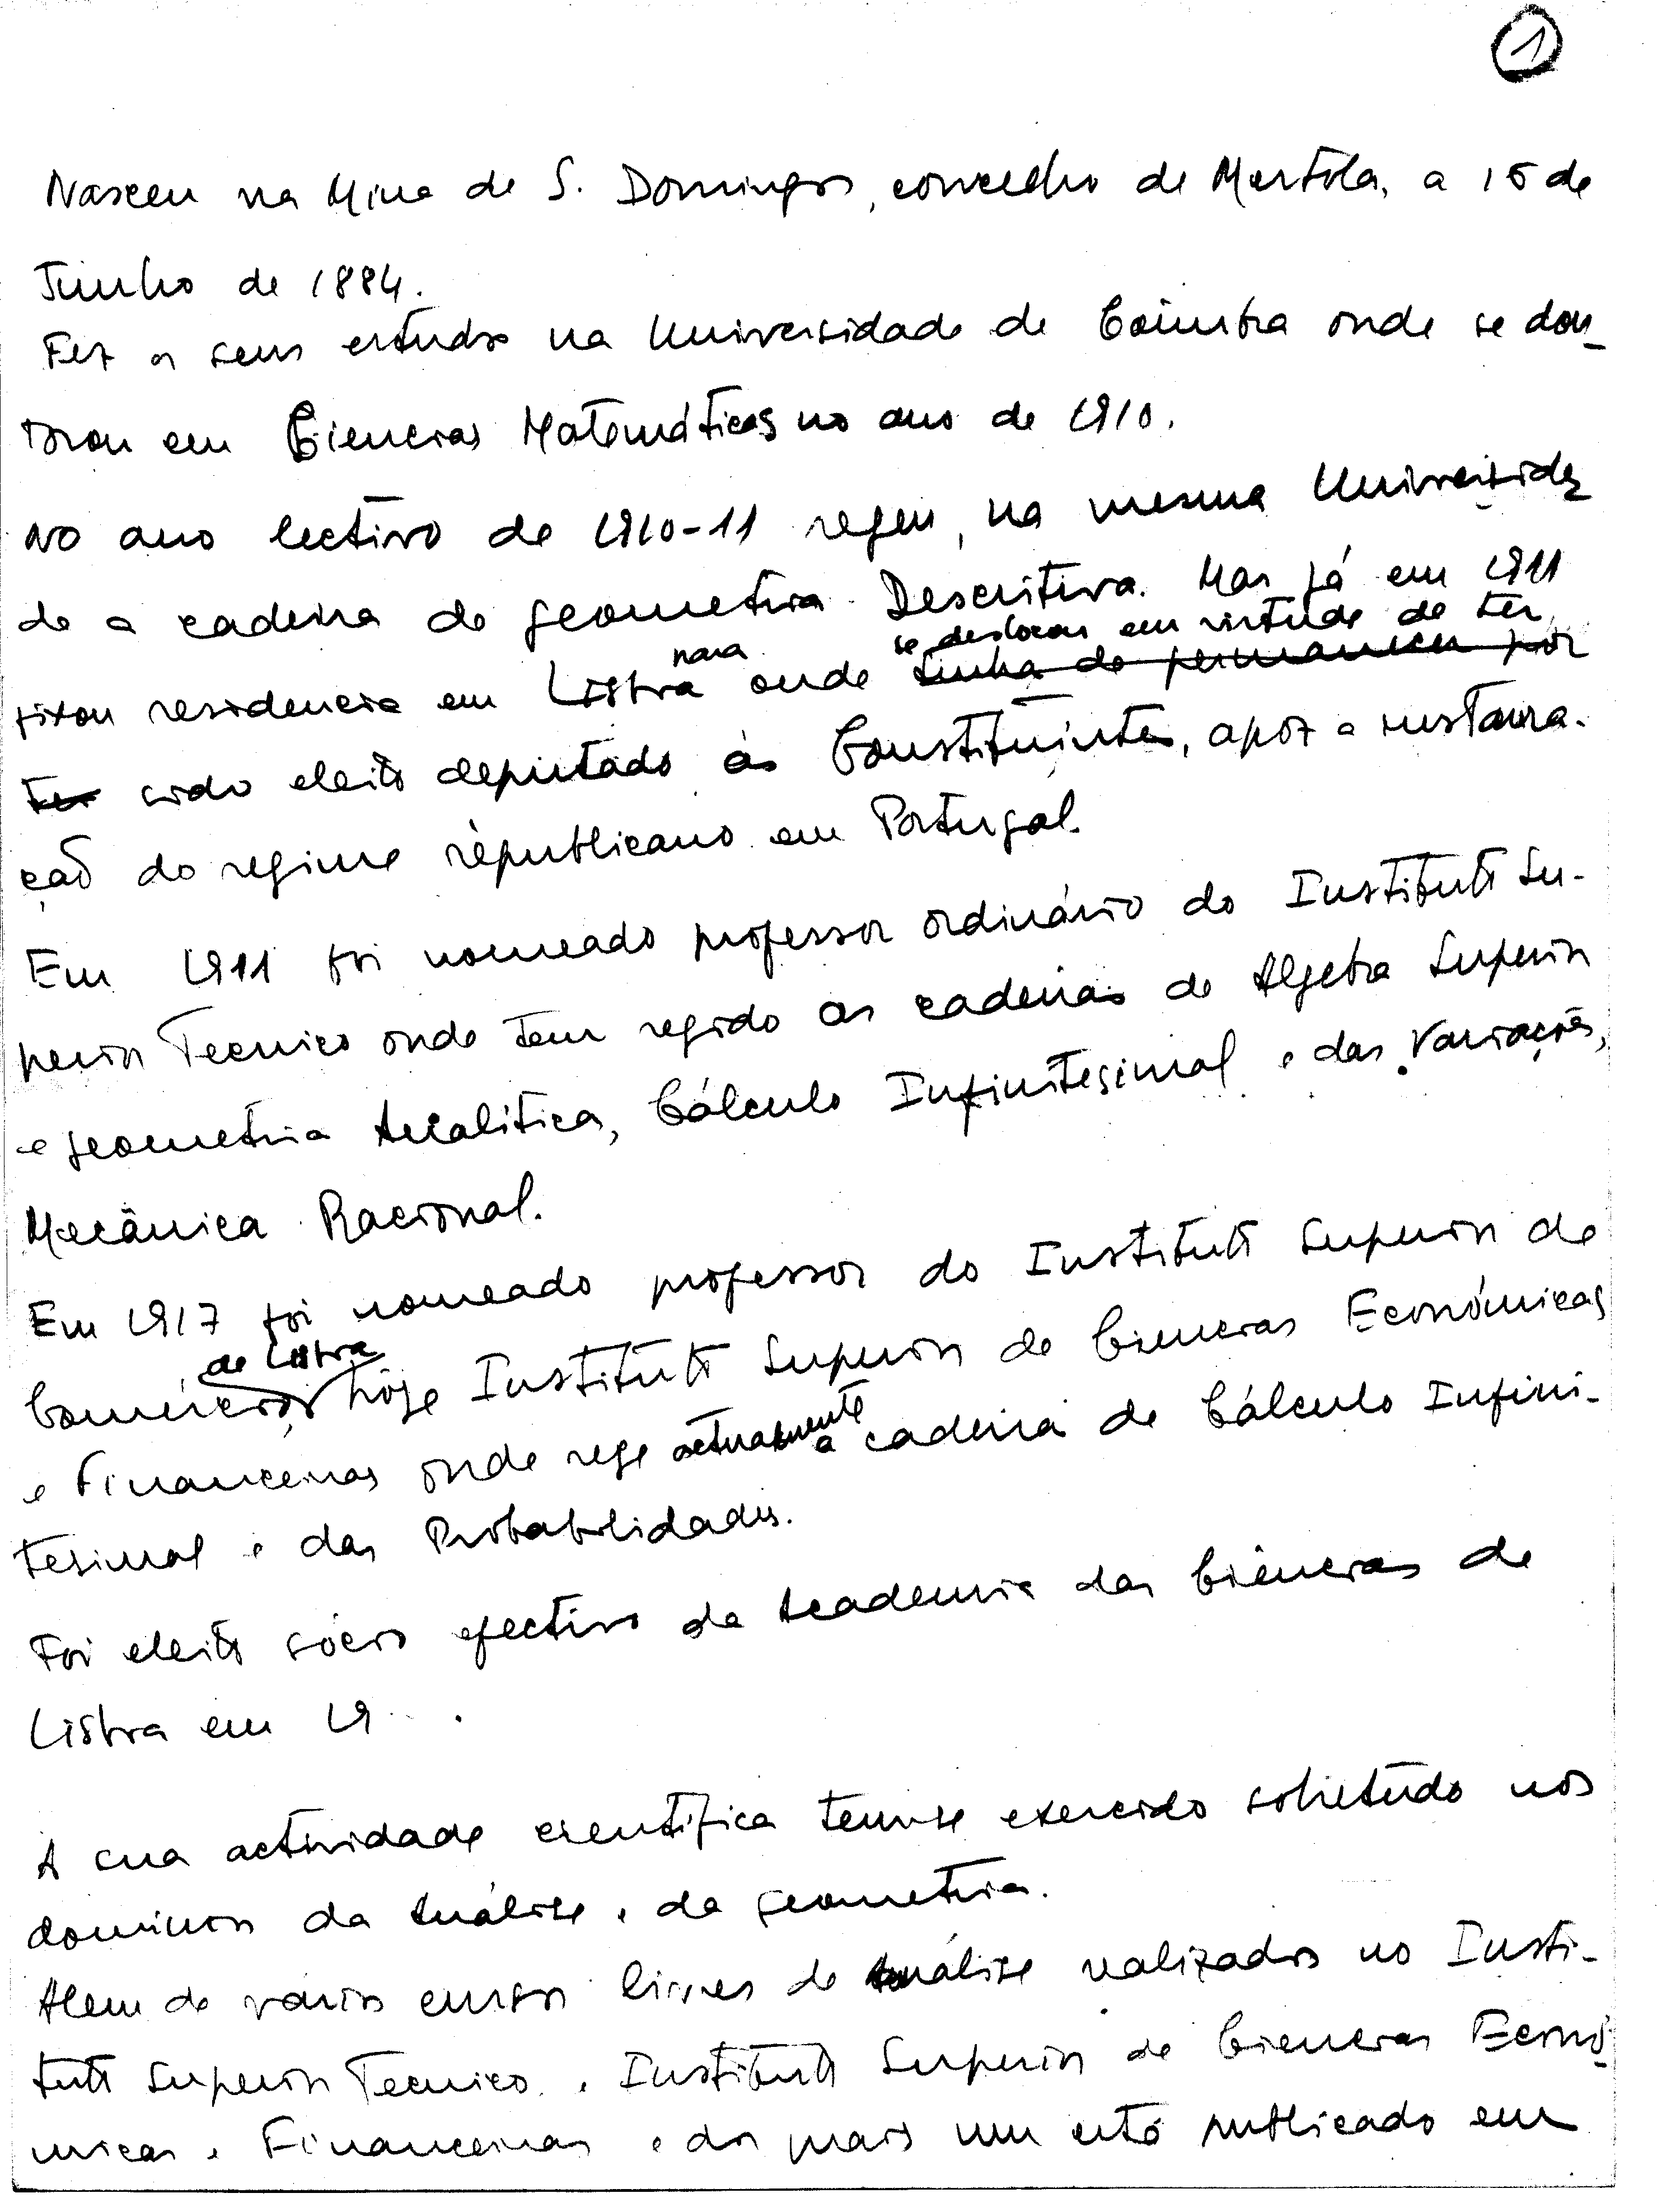 1
Nasceu na Mina de S. Domingos, concelho de Mertola, a 15 de
Junho de 1884.
Fez os seus estudos na Universidade de Coimbra onde se dou-
torou em Ciencias Matemáticas no ano de 1910.
No ano lectivo de 1910-11 regeu, na mesma Universida
de a cadeira de geometria Descritiva. Mas já em 1911
fixou residencia em Lisboa para onde se deslocou em virtude de ter
tinha de permanecer por
ter sido eleito deputado ás Constituintes, após a restaura-
ção do regime republicano em Portugal.
Em 1911 foi nomeado professor ordinário do Instituto Su-
perior Tecnico onde tem regido as cadeiras de Algebra Superior
e geometria Analítica, Cálculo Infinitesimal e das Variações,
Mecânica Racional.
Em 1917 foi nomeado professor do Instituto Superior de
Comércio de Lisboa, hoje Instituto Superior de Ciencias Económicas
e Financeiras onde rege actualmente a cadeira de Cálculo Infini-
tesimal e das Probabilidades.
Foi eleito sócio efectivo da Academia das Ciências de
Lisboa em 19 .
A sua actividade cientifica tem-se exercido sobretudo nos
dominios da Análise e da geometria.
Alem de varios cursos livres de Análise realizados no Insti-
tuto Superior Tecnico e Instituto Superior de Ciencias Econó-
micas e Financeiras e dos quais um está publicado em